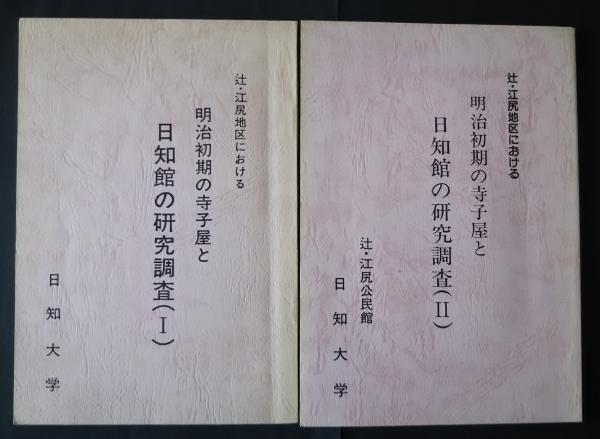 辻・江尻地区における
明治初期の寺子屋と
日知館の研究調査(Ⅰ)
日知大学
辻・江尻地区における
明治初期の寺子屋と
日知館の研究調査(Ⅱ)
辻・江尻公民館
日知大学